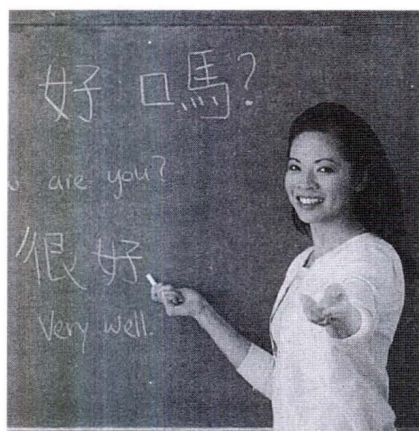 好嗎?
are you?
很好
Very well.